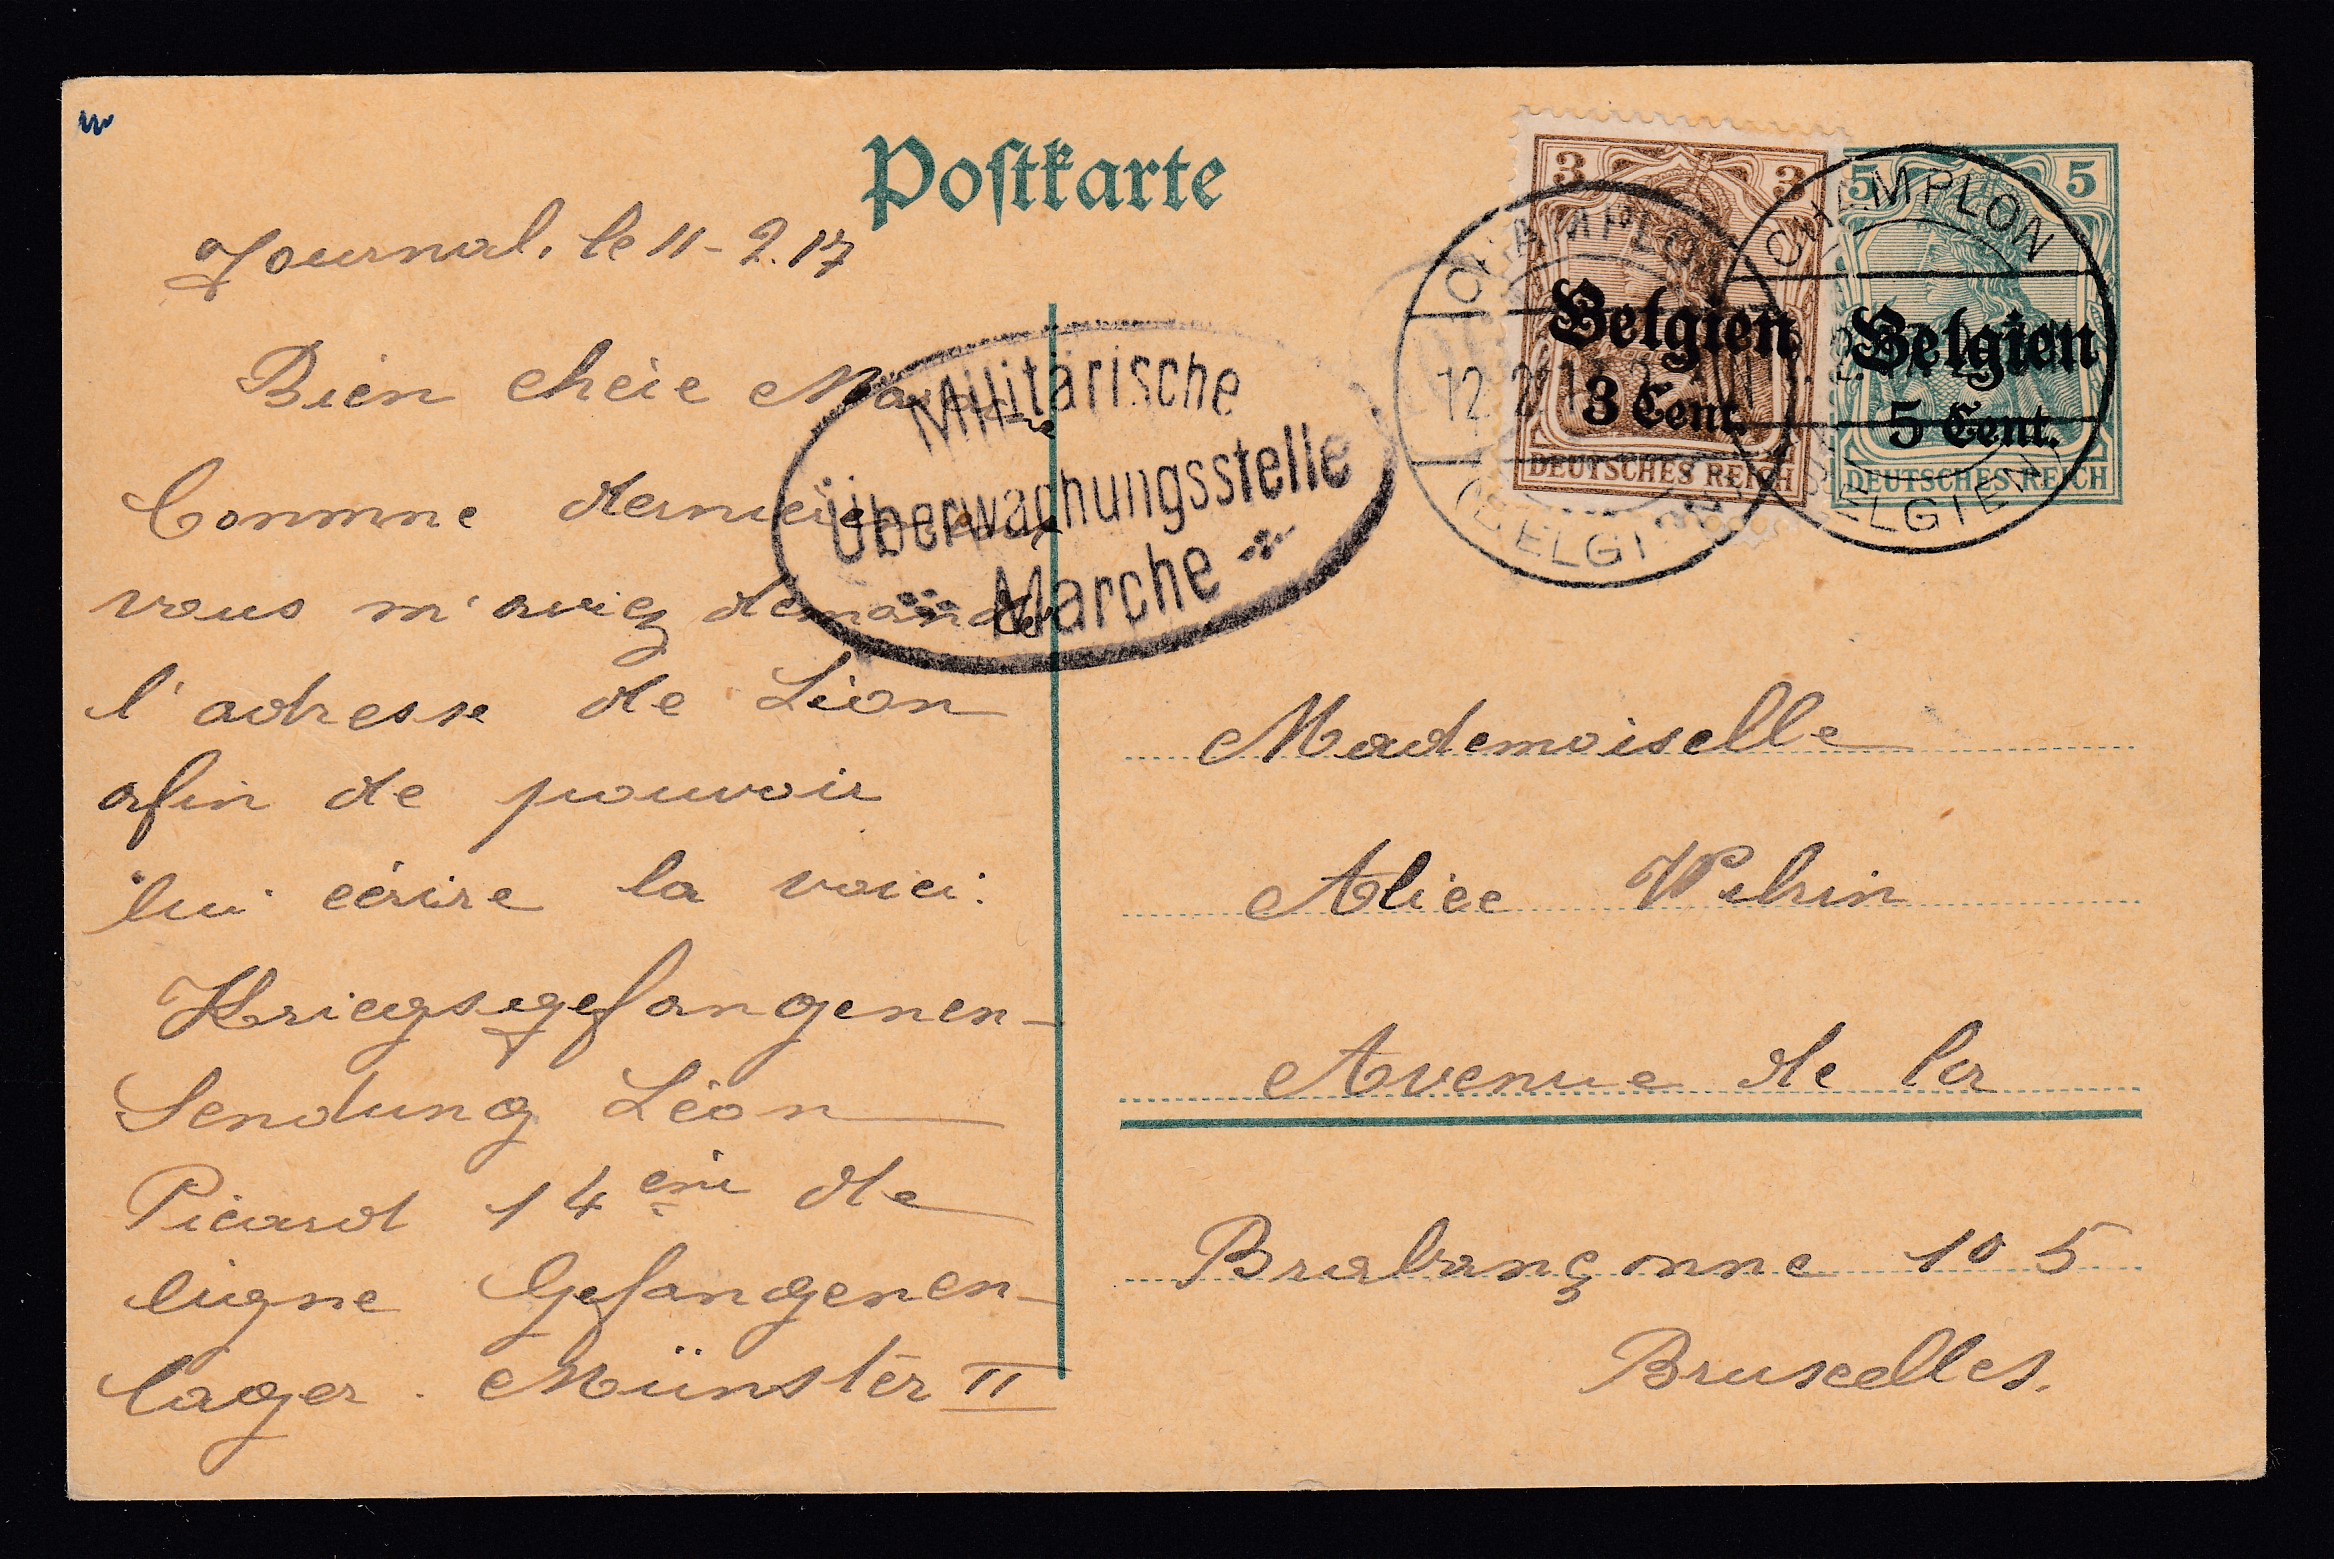 Postkarte
Journal. le 11-2.17
Bien chère Marraine
Comme dernièrement
vous m'aviez demandé
l'adresse de Léon
afin de pouvoir
lui écrire la voici:
Kriegsgefangenen-
Sendung Léon
Picard 14ème de
ligne Gefangenen-
lager. Münster II
Militärische
Überwachungsstelle
Marche
3 3
Belgien
3 Cent.
DEUTSCHES REICH
5 5
Belgien
5 Cent.
DEUTSCHES REICH
CHAMPLON
12. 2. 17
(BELGIEN)
CHAMPLON
(BELGIEN)
Mademoiselle
Alice
Avenue de la
Brabançonne 105
Bruxelles.